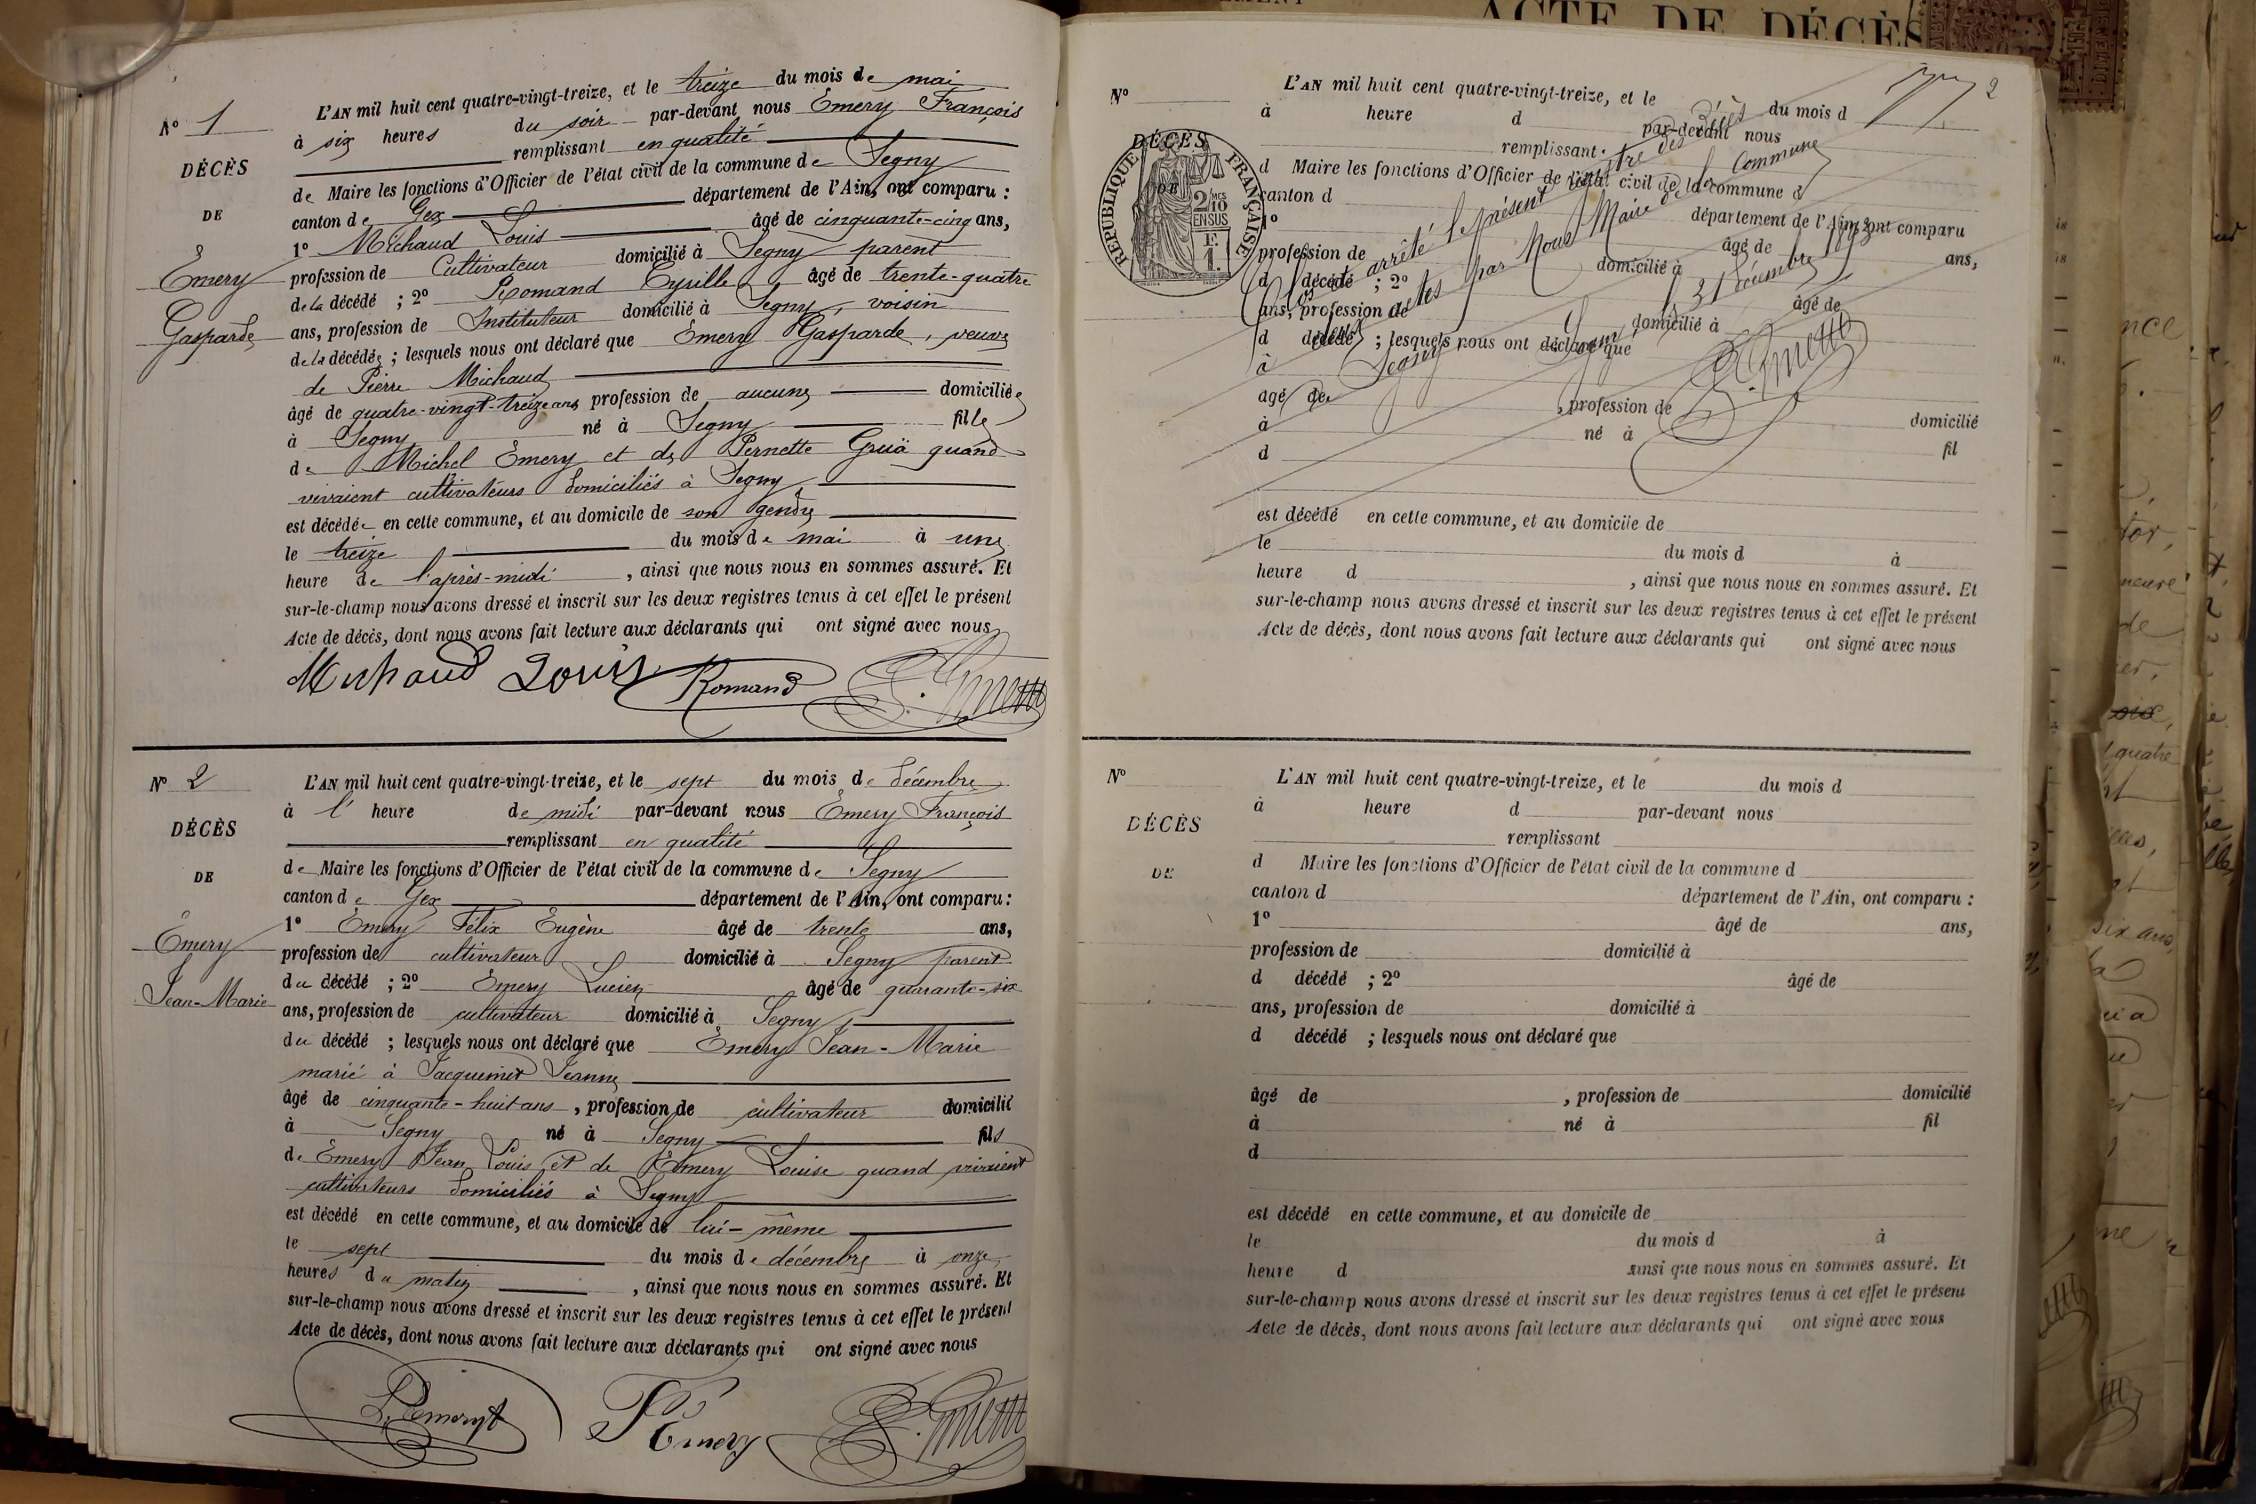 N° 1
DÉCÈS
DE
Emery
Gasparde
L'AN mil huit cent quatre-vingt-treize, et le treize du mois de mai
à six heures du soir par-devant nous Emery François
remplissant en qualité
de Maire les fonctions d'Officier de l'état civil de la commune de Segny
canton de Gex département de l'Ain, ont comparu :
1° Michaud Louis âgé de cinquante-cinq ans,
profession de Cultivateur domicilié à Segny parent
de la décédé ; 2° Romand Cyrille âgé de trente-quatre
ans, profession de Instituteur domicilié à Segny, voisin
de la décédée ; lesquels nous ont déclaré que Emery Gasparde, veuve
de Pierre Michaud
âgé de quatre-vingt-treize ans profession de aucune domiciliée
à Segny né à Segny fille
de Michel Emery et de Pernette Gruä quand
vivaient cultivateurs domiciliés à Segny
est décédée en cette commune, et au domicile de son gendre
le treize du mois de mai à une
heure de l'après-midi, ainsi que nous nous en sommes assuré. Et
sur-le-champ nous avons dressé et inscrit sur les deux registres tenus à cet effet le présent
Acte de décès, dont nous avons fait lecture aux déclarants qui ont signé avec nous
Michaud Louis Romand
N° 2
DÉCÈS
DE
Emery
Jean-Marie
L'AN mil huit cent quatre-vingt-treize, et le sept du mois de décembre
à l' heure de midi par-devant nous Emery François
remplissant en qualité
de Maire les fonctions d'Officier de l'état civil de la commune de Segny
canton de Gex département de l'Ain, ont comparu :
1° Emery Félix Eugène âgé de trente ans,
profession de cultivateur domicilié à Segny parent
du décédé ; 2° Emery Lucien âgé de quarante-six
ans, profession de cultivateur domicilié à Segny,
du décédé ; lesquels nous ont déclaré que Emery Jean-Marie
marié à Jacquemet Jeanne
âgé de cinquante-huit ans, profession de cultivateur domicilié
à Segny né à Segny fils
de Emery Jean Louis et de Emery Louise quand vivaient
cultivateurs domiciliés à Segny
est décédé en cette commune, et au domicile de lui-même
le sept du mois de décembre à onze
heures du matin, ainsi que nous nous en sommes assuré. Et
sur-le-champ nous avons dressé et inscrit sur les deux registres tenus à cet effet le présent
Acte de décès, dont nous avons fait lecture aux déclarants qui ont signé avec nous
L. Emery F. Emery
ACTE DE DÉCÈS
2
N°
DÉCÈS
RÉPUBLIQUE FRANÇAISE
2/10 EN SUS
L'AN mil huit cent quatre-vingt-treize, et le du mois d
à heure d par-devant nous
remplissant
d Maire les fonctions d'Officier de l'état civil de la commune d
canton d département de l'Ain, ont comparu
1° âgé de ans,
profession de domicilié à
d décédé ; 2° âgé de
ans, profession de domicilié à
d décédé ; lesquels nous ont déclaré que
à
agé de , profession de domicilié
à né à fil
d
Clos et arrêté le présent registre des décès
deux actes par Nous Maire de la Commune
Segny le 31 décembre 1893
est décédé en cette commune, et au domicile de
le du mois d à
heure d , ainsi que nous nous en sommes assuré. Et
sur-le-champ nous avons dressé et inscrit sur les deux registres tenus à cet effet le présent
Acte de décès, dont nous avons fait lecture aux déclarants qui ont signé avec nous
N°
DÉCÈS
DE
L'AN mil huit cent quatre-vingt-treize, et le du mois d
à heure d par-devant nous
remplissant
d Maire les fonctions d'Officier de l'état civil de la commune d
canton d département de l'Ain, ont comparu :
1° âgé de ans,
profession de domicilié à
d décédé ; 2° âgé de
ans, profession de domicilié à
d décédé ; lesquels nous ont déclaré que
âgé de , profession de domicilié
à né à fil
d
est décédé en cette commune, et au domicile de
le du mois d à
heure d ainsi que nous nous en sommes assuré. Et
sur-le-champ nous avons dressé et inscrit sur les deux registres tenus à cet effet le présent
Acte de décès, dont nous avons fait lecture aux déclarants qui ont signé avec nous